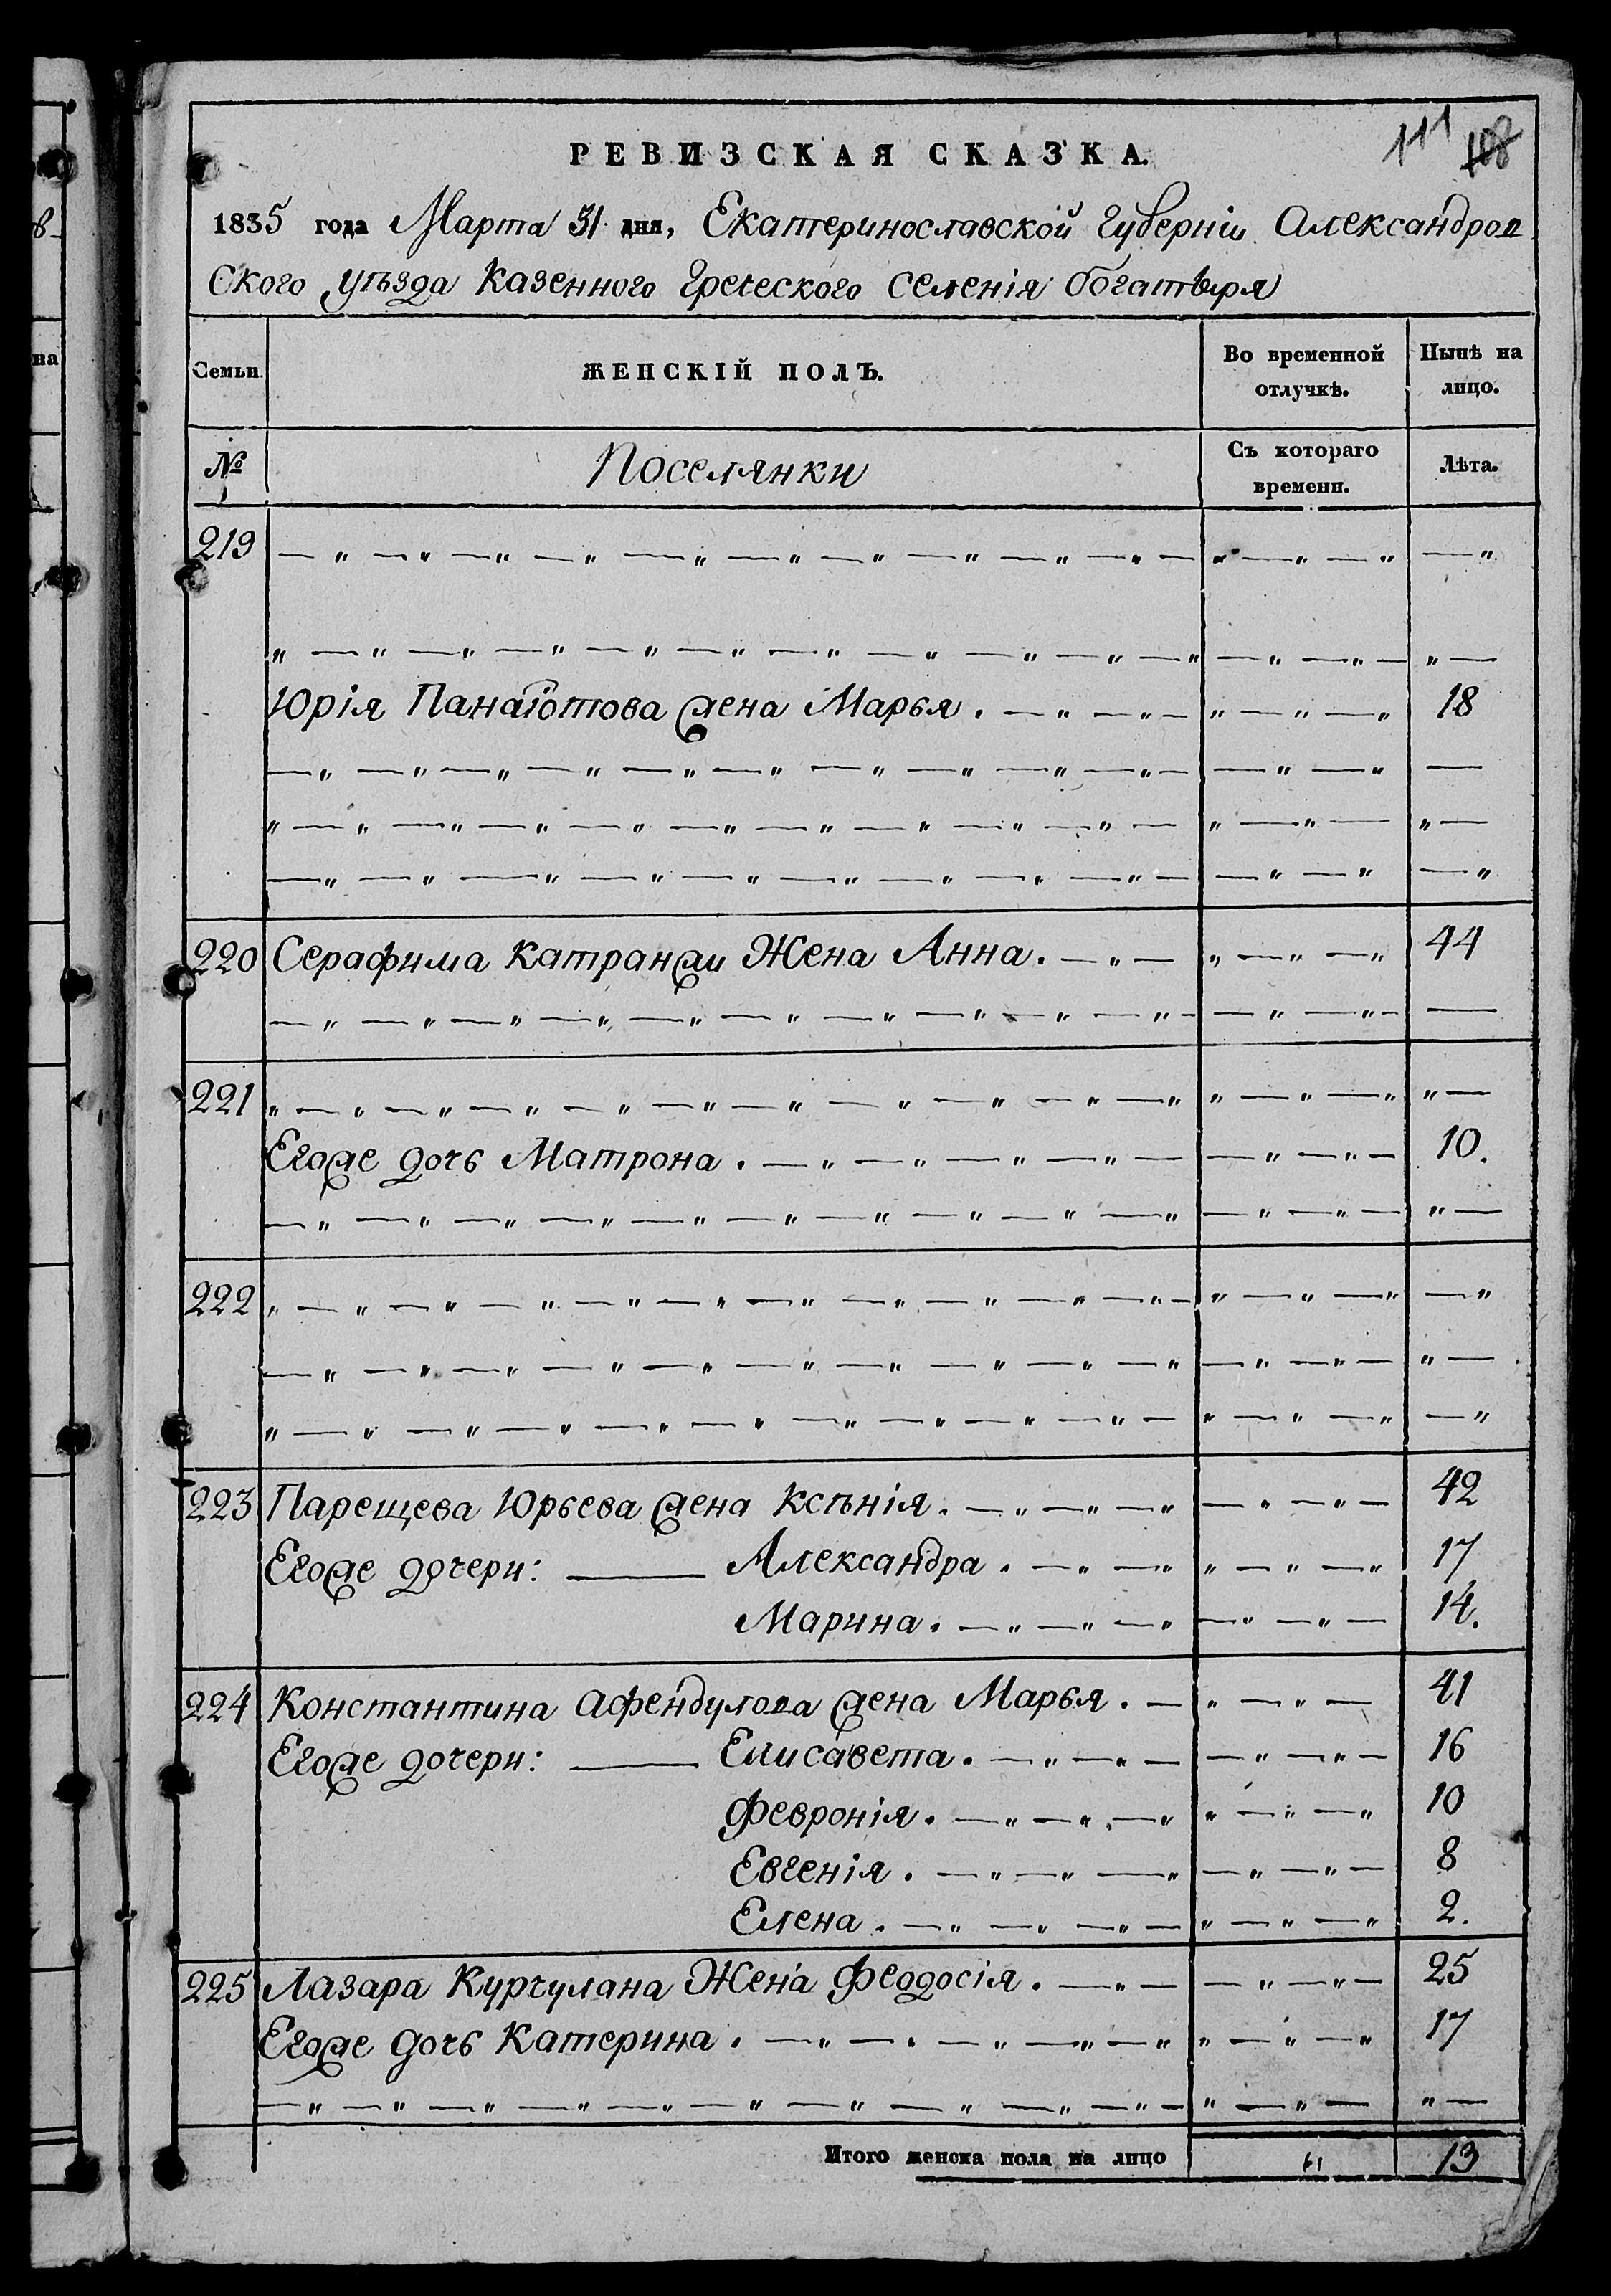 111 108
РЕВИЗСКАЯ СКАЗКА.
1835 года Марта 31 дня, Екатеринославской Губерніи Александров
ского уѣзда Казенного Греческого селенія Богатыря
Семьи. ЖЕНСКІЙ ПОЛЪ. Во временной отлучкѣ. Нынѣ на лицо.
№ Поселянки Съ котораго времени. Лѣта.
219 — " — " — " — " — " — " — " — " — " — " — " — " — " — "
" — " — " — " — " — " — " — " — " — " — " — " — " — " —
Юрія Панаіотова жена Марья. — " — " — " — " — " 18
— " — " — " — " — " — " — " — " — " — " — — " — " —
" — " — " — " — " — " — " — " — " — " — " — " — " —
— " — " — " — " — " — " — " — " — " — — " — " — "
220 Серафима Катранжи Жена Анна. — " — " — " — " 44
— " — " — " — " — " — " — " — " — " — " — — " — " — —
221 " — " — " — " — " — " — " — " — " — " — " " — " — " " —
Егоже дочь Матрона. — " — " — " — " — — " — " — 10.
— " — " — " — " — " — " — " — " — " — " — " — " — " —
222 " — " — " — " — " — " — " — " — " — " — " — " — " — "
— " — " — " — " — " — " — " — " — " — " — " — " — " —
" — " — " — " — " — " — " — " — " — " — " — " — " — "
223 Парещева Юрьева жена Ксѣнія. — " — " — " — " — " — 42
Егоже дочери: — Александра. — " — " " — " — " 17
Марина. — " — " — " — " — " — 14.
224 Константина Афендулова жена Марья. — " — " — 41
Егоже дочери: — Елисавета. — " — " — — " — " — 16
Февронія. — " — " — " " — " — " 10
Евгенія. — " — " — " — " — " — 8
Елена. — " — " — " — " — " — " 2.
225 Лазара Курчулана Жена Феодосія. — " — — " — " — 25
Егоже дочь Катерина. — " — " — " — " — " " — " — " 17
— " — " — " — " — " — " — " — " — " — " — " — " — " —
Итого женска пола на лицо " 13